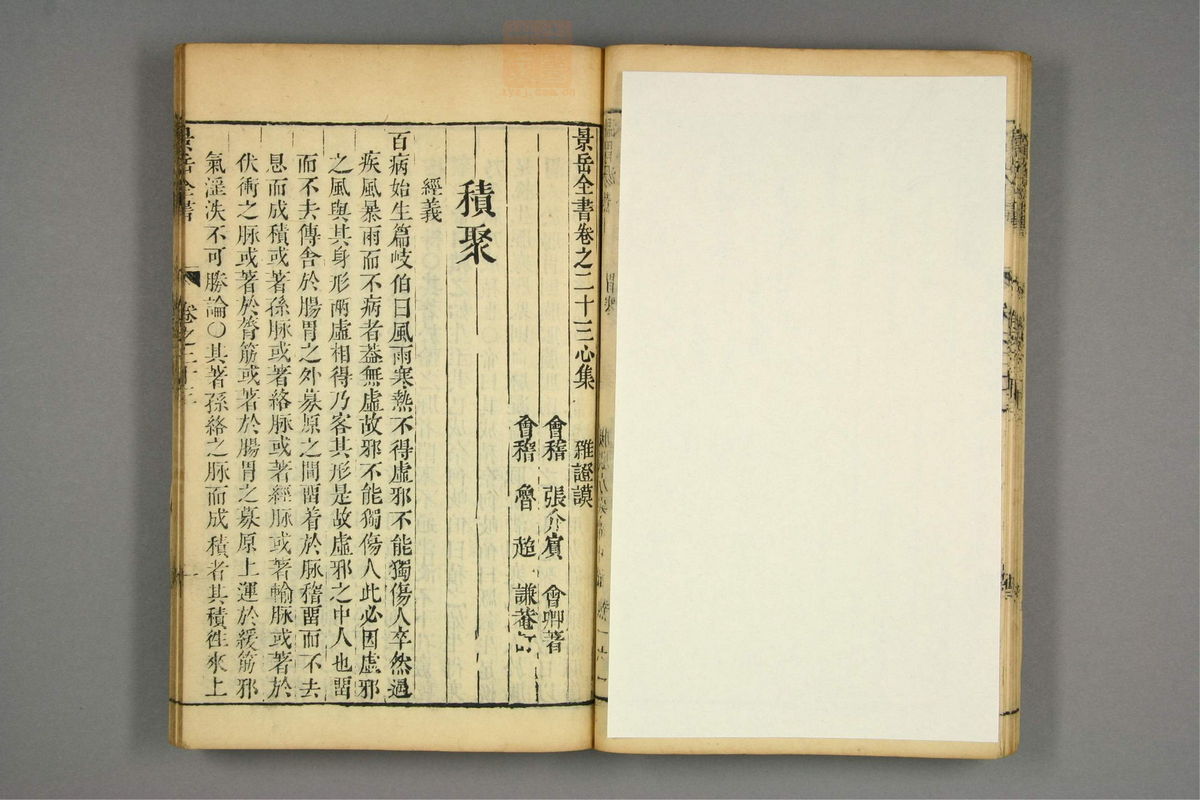 景岳全書卷之二十三心集 雜證謨
會稽 張介賓 會卿著
會稽 魯超 謙菴訂
積聚
經義
百病始生篇岐伯曰風雨寒熱不得虛邪不能獨傷人卒然逢
疾風暴雨而不病者葢無虛故邪不能獨傷人此必因虛邪
之風與其身形兩虛相得乃客其形是故虛邪之中人也畱
而不去傳舍於腸胃之外募原之間畱着於脉稽畱而不去
息而成積或著孫脉或著絡脉或著經脉或著輸脉或著於
伏衝之脉或著於膂筋或著於腸胃之募原上運於緩筋邪
氣淫泆不可勝論〇其著孫絡之脉而成積者其積徃來上
景岳全書 卷之二十三 一